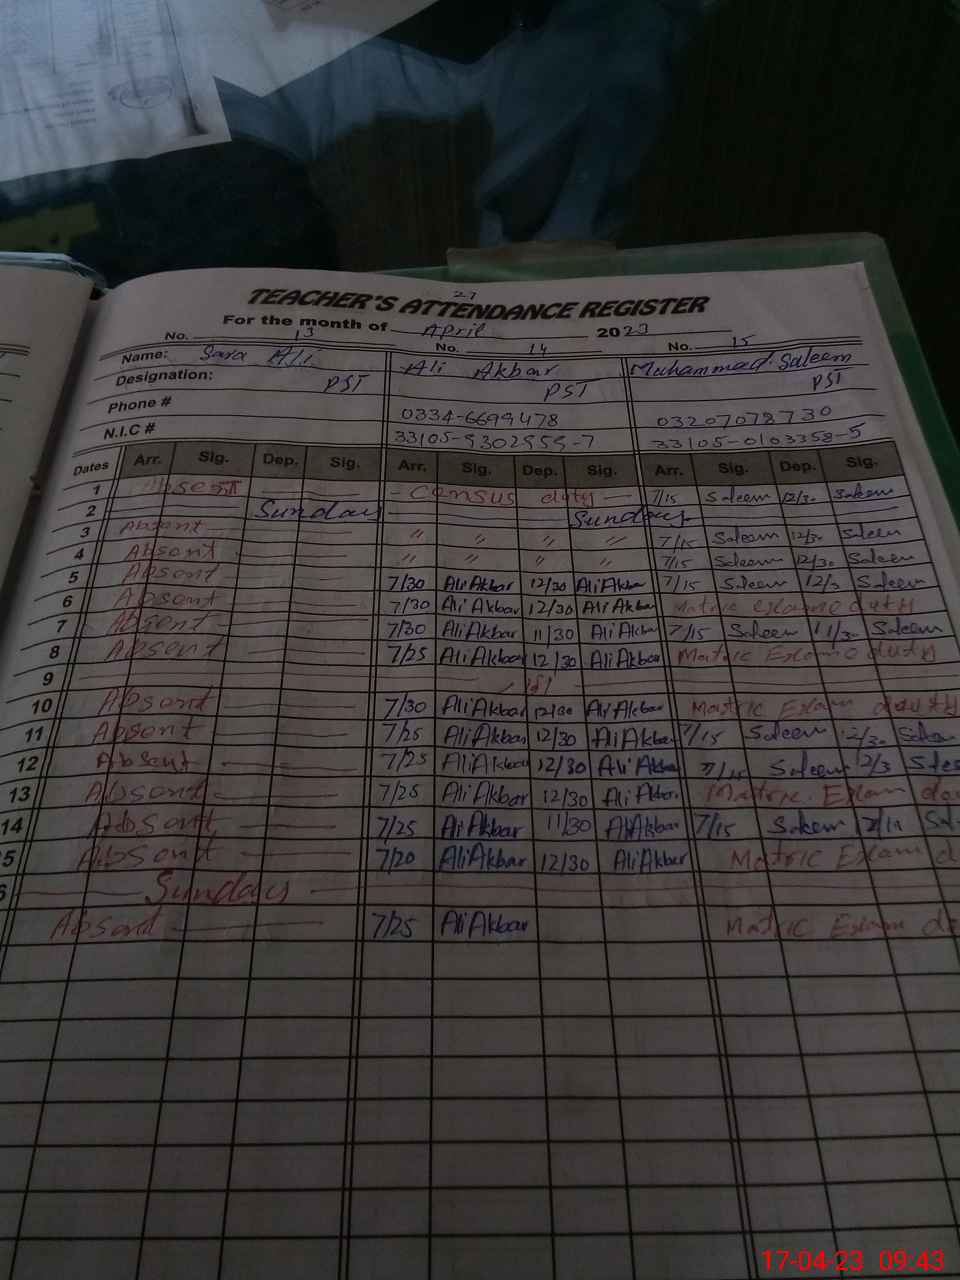 27
TEACHER'S ATTENDANCE REGISTER
For the month of April 2023
No. 13 No. 14 No. 15
Name: Sara Ali Ali Akbar Muhammad Saleem
Designation: PST PST PST
Phone # 0334-6699478 03207078730
N.I.C # 33105-9302959-7 33105-0103358-5
Dates Arr. Sig. Dep. Sig. Arr. Sig. Dep. Sig. Arr. Sig. Dep. Sig.
1 Absent Census duty 7/15 Saleem 12/30 Saleem
2 Sunday Sunday
3 Absent " " " " 7/15 Saleem 12/30 Saleem
4 Absent " " " " 7/15 Saleem 12/30 Saleem
5 Absent 7/30 Ali Akbar 12/30 Ali Akbar 7/15 Saleem 12/3 Saleem
6 Absent 7/30 Ali Akbar 12/30 Ali Akbar Matric Exam duty
7 Absent 7/30 Ali Akbar 11/30 Ali Akbar 7/15 Saleem 11/30 Saleem
8 Absent 7/25 Ali Akbar 12/30 Ali Akbar Matric Exam duty
9
10 Absent 7/30 Ali Akbar 12/30 Ali Akbar Matric Exam duty
11 Absent 7/25 Ali Akbar 12/30 Ali Akbar 7/15 Saleem 12/30 Saleem
12 Absent 7/25 Ali Akbar 12/30 Ali Akbar 7/15 Saleem 12/3
13 Absent 7/25 Ali Akbar 12/30 Ali Akbar Matric Exam
14 Absent 7/25 Ali Akbar 11/30 Ali Akbar 7/15 Saleem
5 Absent 7/20 Ali Akbar 12/30 Ali Akbar Matric Exam d
6 Sunday
Absent 7/25 Ali Akbar Matric Exam
17-04-23 09:43